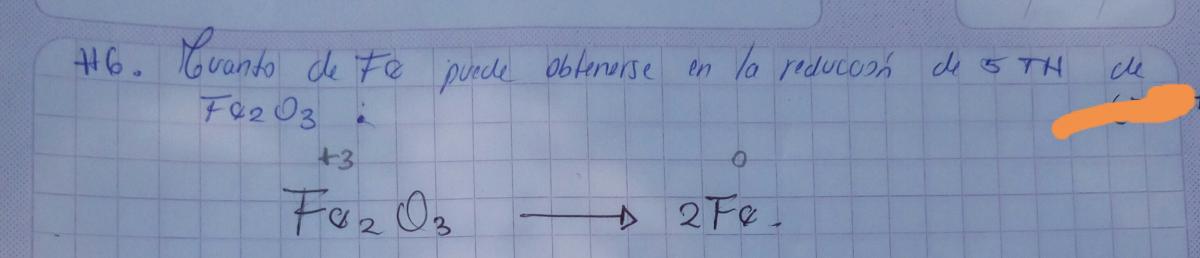 #6. Cuanto de Fe puede obtenerse en la reducción de 5 TH de
Fe2O3 :
+3 0
Fe2O3 → 2Fe.